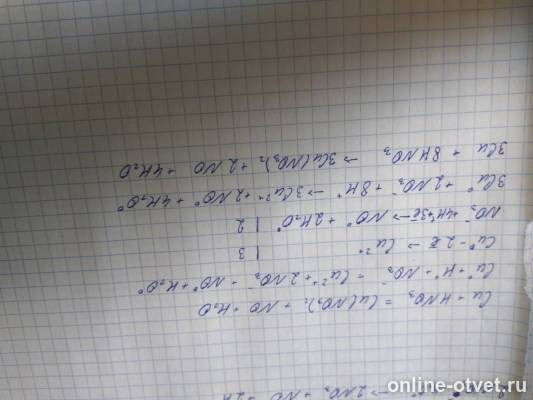 Cu + HNO₃ = Cu(NO₃)₂ + NO + H₂O
Cu⁰ + H⁺ + NO₃⁻ = Cu²⁺ + 2NO₃⁻ + NO⁰ + H₂O⁰
Cu⁰ - 2e → Cu²⁺ | 3
NO₃⁻ + 4H⁺ + 3e → NO⁰ + 2H₂O⁰ | 2
3Cu⁰ + 2NO₃⁻ + 8H⁺ → 3Cu²⁺ + 2NO⁰ + 4H₂O⁰
3Cu + 8HNO₃ → 3Cu(NO₃)₂ + 2NO + 4H₂O
online-otvet.ru